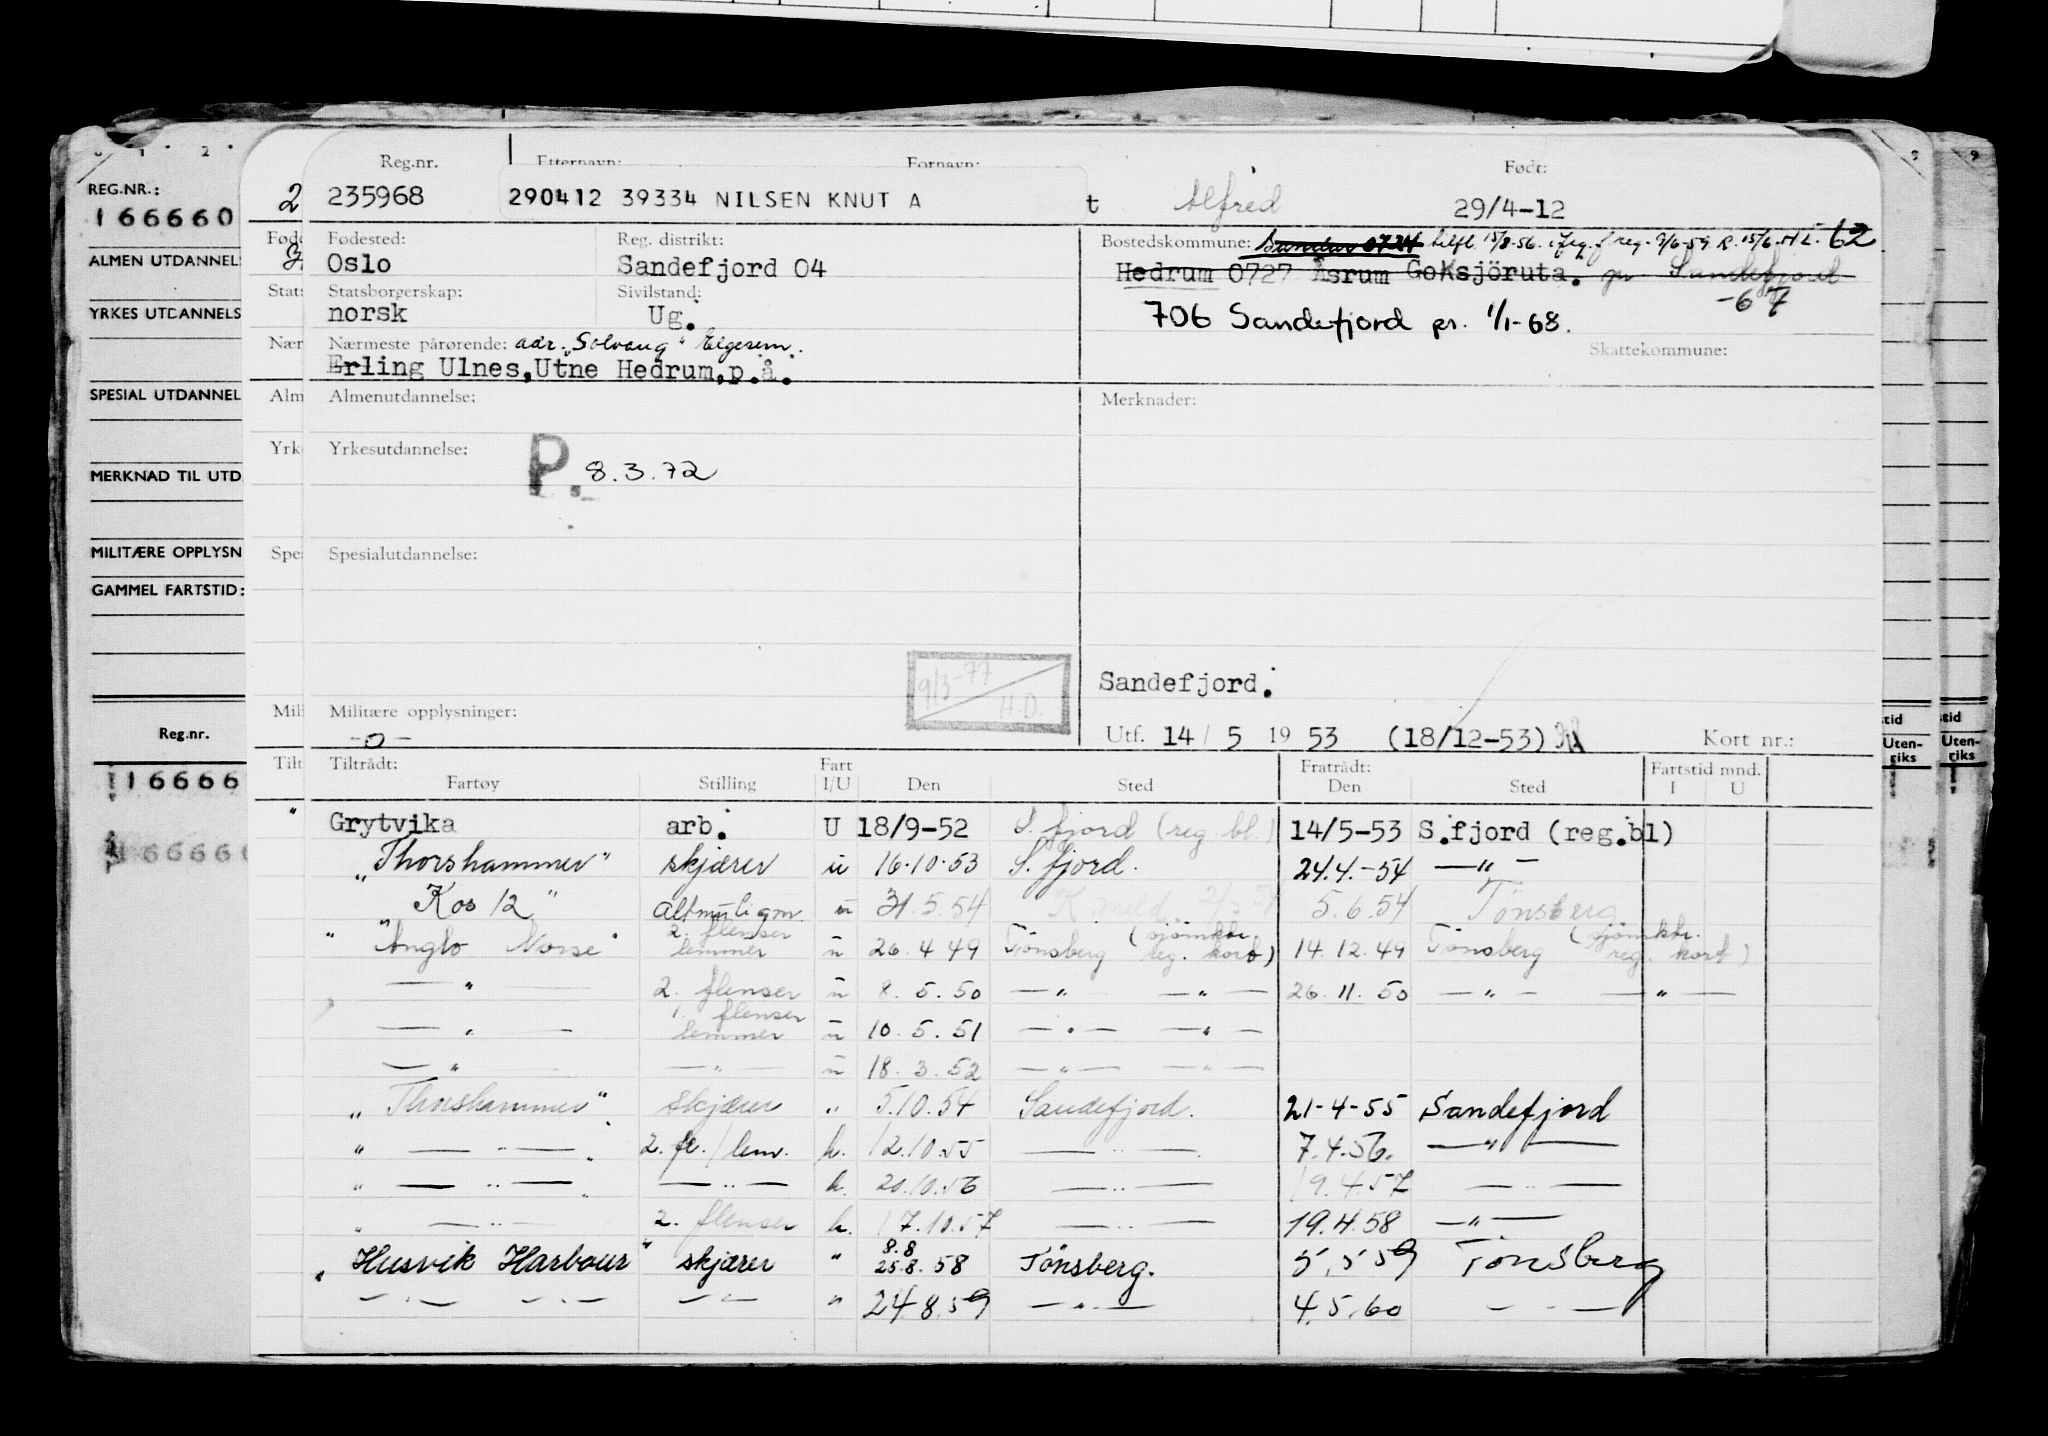 REG.NR.:
166660
ALMEN UTDANNEL
YRKES UTDANNELS
SPESIAL UTDANNEL
MERKNAD TIL UTD
MILITÆRE OPPLYSN
GAMMEL FARTSTID:
Reg.nr.
16666
16666
2
Fød
Stat
Nær
Alm
Yrk
Spe
Mili
Tilt
Reg.nr. Etternavn: Fornavn: Født:
235968 290412 39334 NILSEN KNUT A t Alfred 29/4-12
Fødested: Reg. distrikt: Bostedskommune: Sandar 0724 tilfl. 15/8-56. 62
Oslo Sandefjord 04 Hedrum 0727 Åsrum Goksjöruta. pr Sandefjord
-67
Statsborgerskap: Sivilstand:
norsk Ug. 706 Sandefjord pr. 1/1-68.
Nærmeste pårørende: adr. "Solvang" Elgesem. Skattekommune:
Erling Ulnes,Utne Hedrum,p.å.
Almenutdannelse: Merknader:
Yrkesutdannelse:
P. 8.3.72
Spesialutdannelse:
9/3-77
H.D.
Sandefjord.
Militære opplysninger:
-0- Utf. 14/ 5 19 53 (18/12-53) Kort nr.:
Tiltrådt: Fart Fratrådt: Fartstid mnd.
Fartøy Stilling I/U Den Sted Den Sted I U
Grytvika arb. U 18/9-52 S.fjord (reg. bl.) 14/5-53 S.fjord (reg.bl)
"Thorshammer" skjærer u 16.10.53 S.fjord. 24.4.-54 —"—
"Kos 12" altmuligm u 31.5.54 K.meld. 5.6.54 Tønsberg
"Anglo Norse" 2. flenser lemmer u 26.4 49 Tønsberg (sjømktr. reg. kort) 14.12.49 Tønsberg (sjømktr. reg. kort)
—"— 2. flenser u 8.5.50 —"— —"— 26.11.50 —"— —"—
—"— 1. flenser lemmer u 10.5.51 —"— —"—
—"— —"— u 18.3.52 —"— —"—
"Thorshammer" skjærer " 5.10.54 Sandefjord. 21-4-55 Sandefjord
" —"— " 2. fl./lem. h. 12.10.55 —"— 7.4.56. —"—
" —"— " —"— h. 20.10.56 —"— 19.4.57 —"—
" —"— 2. flenser h. 17.10.57 —"— 19.4.58 —"—
"Husvik Harbour" skjærer " 8.8 25.8.58 Tönsberg. 5.5 59 Tönsberg
—"— —"— —"— " 24.8.59 —"— 4.5.60 —"—
tid
Uten-
riks
tid
Uten-
riks